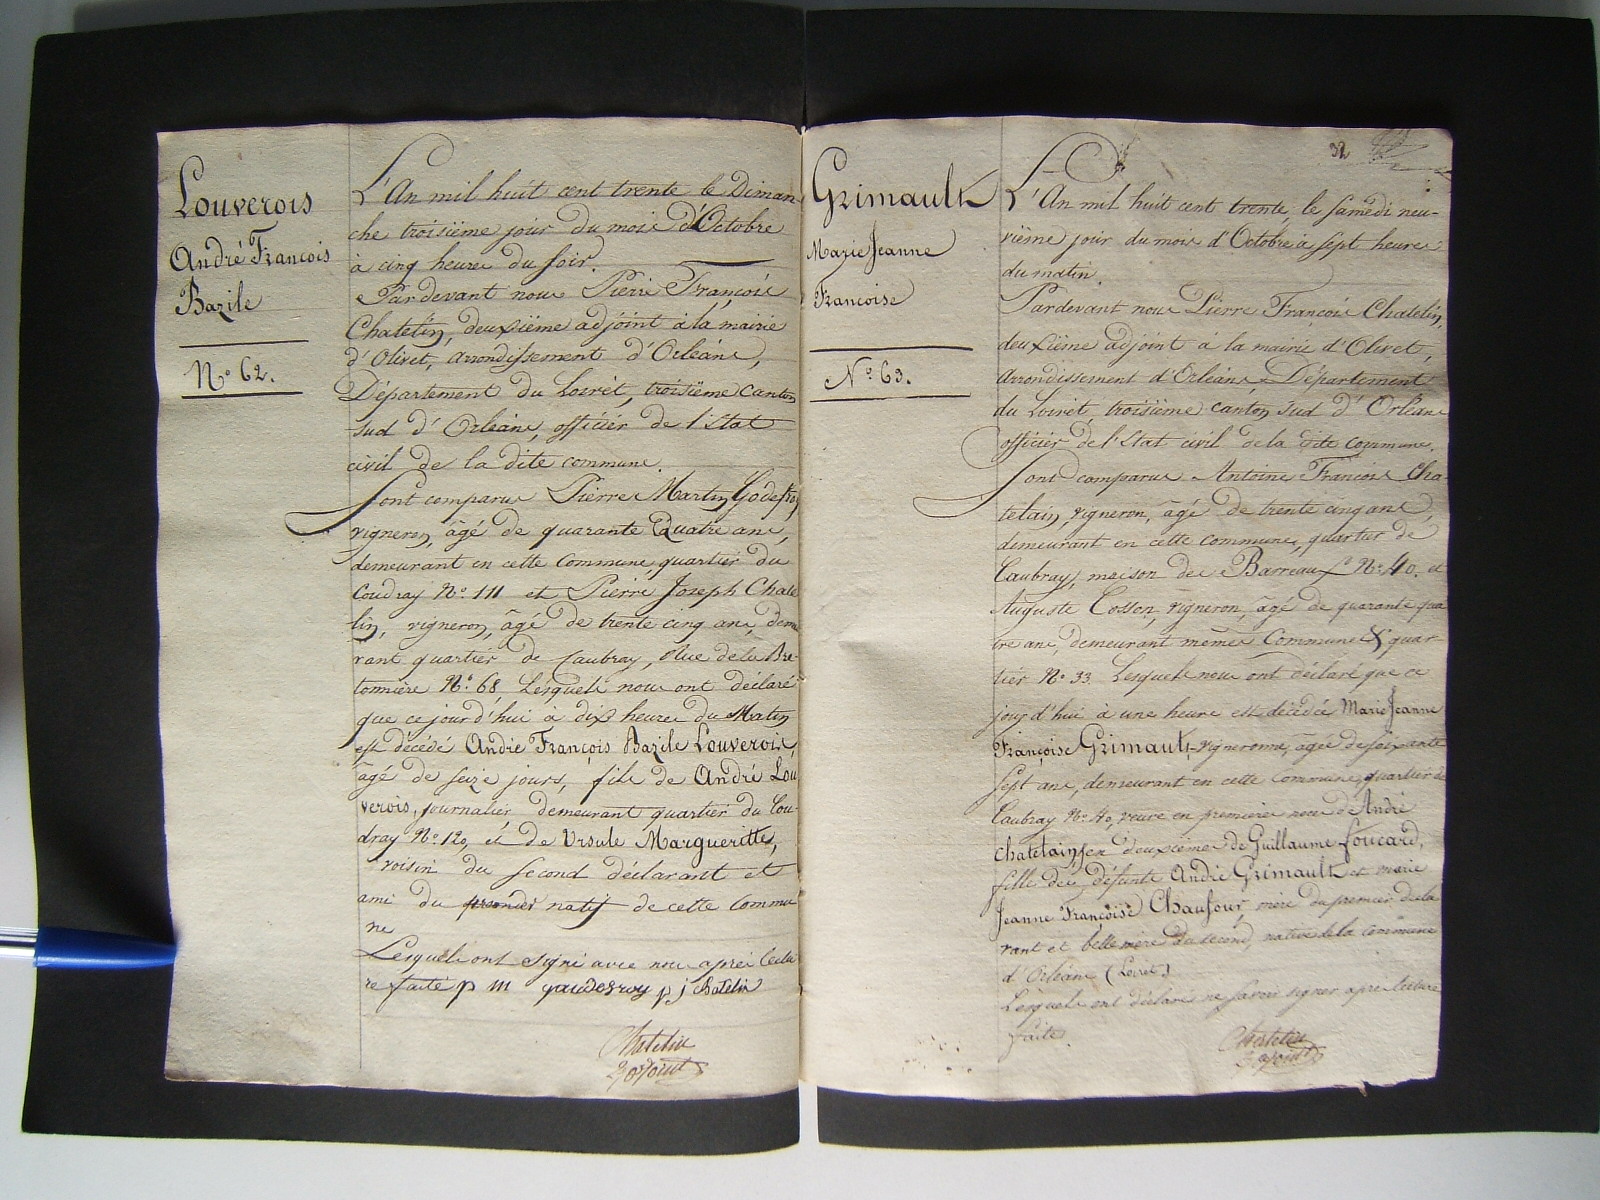 Louverois
André François
Bazile
N.o 62.
L'An mil huit cent trente le Diman-
che troisième jour du mois d'Octobre
à cinq heures du soir.
Pardevant nous Pierre François
Chatelin, deuxième adjoint à la mairie
d'Olivet, arrondissement d'Orléans,
Département du Loiret, troisième canton
sud d'Orléans, officier de l'Etat
civil de la dite commune.
Sont comparus Pierre Martin Godefroy
vigneron, âgé de quarante Quatre ans,
demeurant en cette Commune, quartier du
Coudray N.o 111 et Pierre Joseph Chate
lin, vigneron, âgé de trente cinq ans, demeu
rant quartier de Caubray, Rue de la Bre-
tonnière N.o 68. Lesquels nous ont déclaré
que ce jourd'hui à dix heures du Matin
est décédé André François Bazile Louverois,
âgé de seize jours, fils de André Lou
verois, journalier, demeurant quartier du Cou-
dray N.o 120, et de Ursule Margueritte,
voisin du second déclarant et
ami du premier natif de cette Commu
ne
Lesquels ont signé avec nous après lectu
re faite p m gaudefroy p j chatelin
Chatelin
2.e adjoint
32
Grimault
Marie Jeanne
Françoise
N.o 63.
L'An mil huit cent trente, le samedi neu-
vième jour du mois d'Octobre à sept heures
du matin
Pardevant nous Pierre François Chatelin,
deuxième adjoint à la mairie d'Olivet,
arrondissement d'Orléans, Département
du Loiret, troisième canton Sud d'Orléans
officier de l'Etat civil de la dite commune.
Sont comparus Antoine François Cha-
telain, vigneron, âgé de trente cinq ans
demeurant en cette commune, quartier de
Caubray, maison des Barreaux N.o 40. et
Auguste Cosson, vigneron, âgé de quarante qua
tre ans, demeurant même Commune & quar
tier N.o 33. Lesquels nous ont déclaré que ce
jourd'hui à une heure est décédée Marie Jeanne
Françoise Grimault, vigneronne, âgée de soixante
sept ans, demeurant en cette commune, quartier de
Caubray N.o 40, veuve en premières noces d'André
Chatelain, en deuxièmes de Guillaume Foucard,
fille des défunts André Grimault et marie
Jeanne Françoise Chaufour, mère du premier décla
rant et belle mère du second, native de la commune
d'Orléans (Loiret)
Lesquels ont déclaré ne savoir signer après lecture
faite.
Chatelin
2.e adjoint